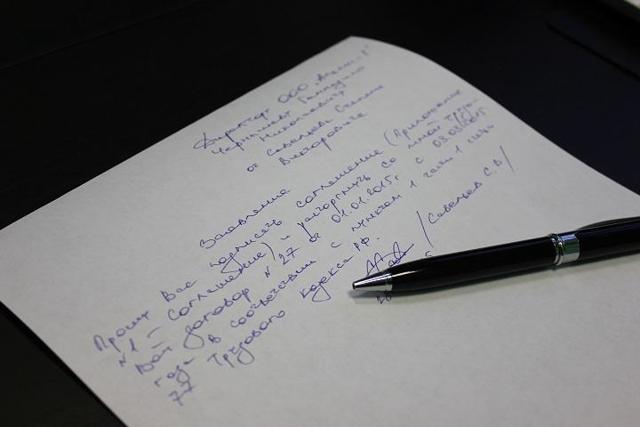 Директору ООО „Альфа-Р"
Чернышеву Геннадию
Николаевичу
от Савельева Степана
Викторовича
Заявление
Прошу Вас подписать соглашение (Приложение
N1 – Соглашение) и расторгнуть со мной трудо-
вой договор N 27 от 01.01.2015г с 03.03.2015
года в соответствии с пунктом 1 части 1 статьи
77 Трудового кодекса РФ.
/Савельев С.В/